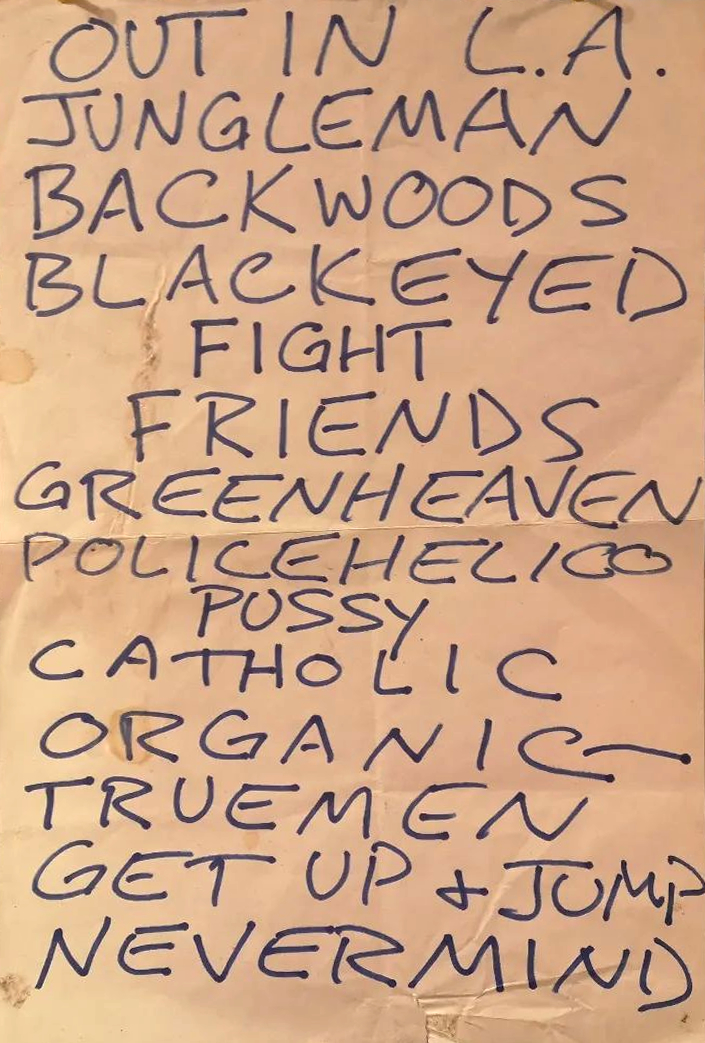 OUT IN L.A.
JUNGLEMAN
BACKWOODS
BLACKEYED
FIGHT
FRIENDS
GREENHEAVEN
POLICEHELICO
PUSSY
CATHOLIC
ORGANIC
TRUEMEN
GET UP & JUMP
NEVERMIND